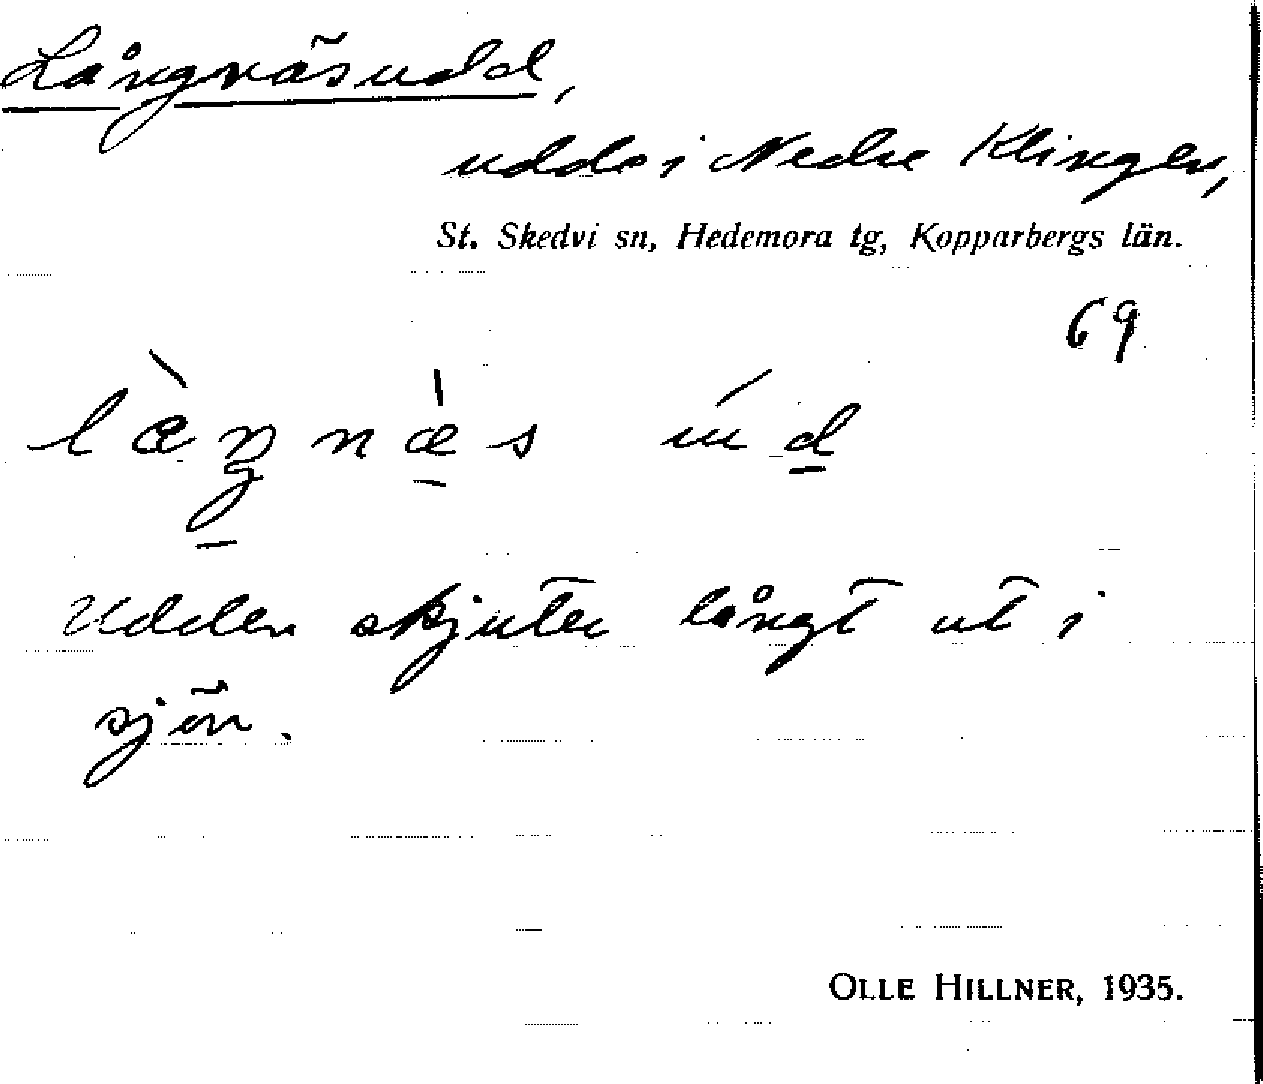 Långnäsudd,
udde i Nedre Klingen,
St. Skedvi sn, Hedemora tg, Kopparbergs län.
69
Udden skjuter långt ut i
sjön.
OLLE HILLNER, 1935.